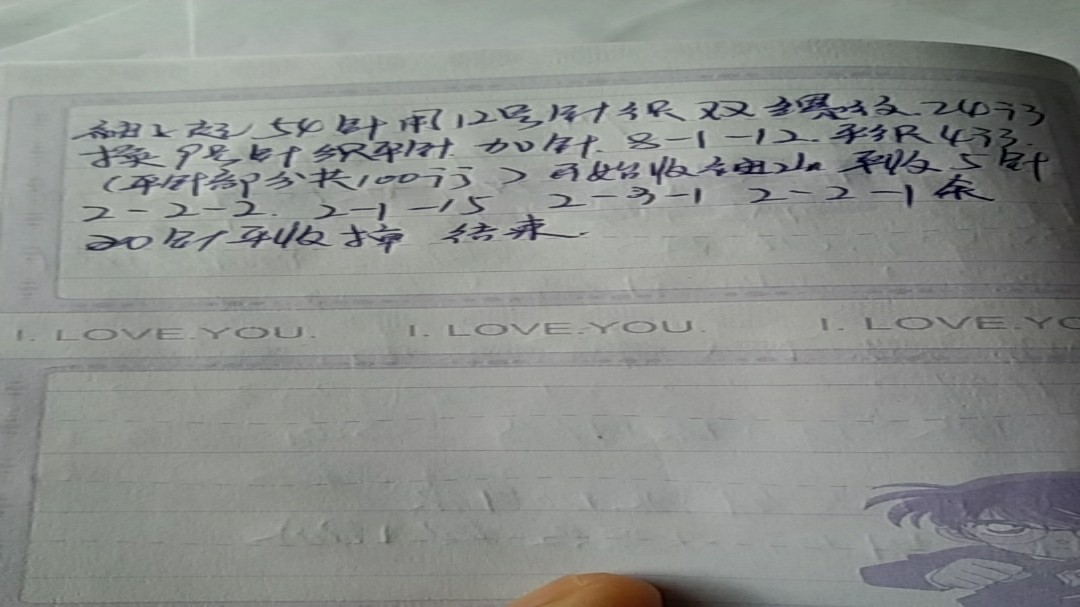 袖: 起54针用12号针织双螺纹24行
换9号针织平针 加针 8-1-12. 平织4行.
(平针部分共100行) 开始收袖山 平收5针
2-2-2. 2-1-15 2-3-1 2-2-1 余
20针平收掉 结束.
I. LOVE.YOU. I. LOVE.YOU. I. LOVE.YO